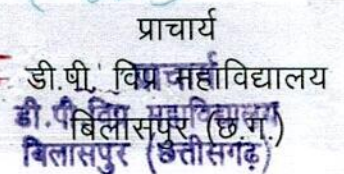 प्राचार्य
डी.पी. विप्र महाविद्यालय
बिलासपुर (छ.ग.)
प्राचार्य
डी.पी. विप्र महाविद्यालय
बिलासपुर (छत्तीसगढ़)